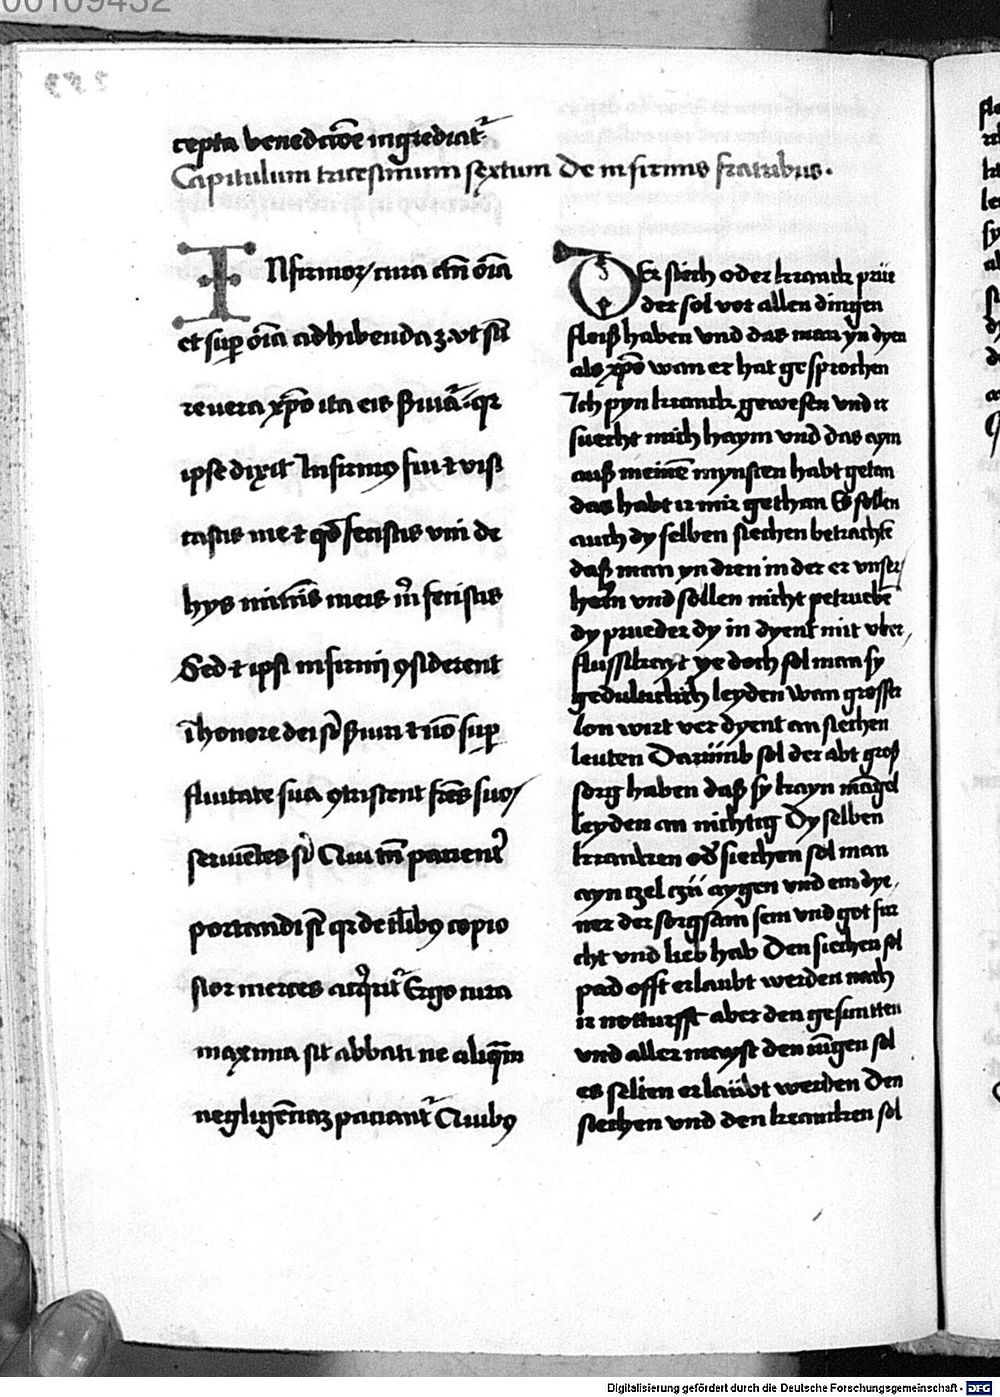 00109432
cepta benediccõe ingrediat᷑
Capitulum tricesimum sextum De infirmis fratribus.
INfirmoꝝ cura añ oĩa
et suꝑ oĩa adhibenda ꝫ. vt sic̃
reuera xp̃o ita eis ẞuiat᷑. qꝛ
ipse dixit Infirmꝰ fui ⁊ visi
tastis me ⁊ qð fecistis vni de
hijs minimis meis m̃ fecistis
Sed ⁊ ipsi infirmi ꝯsiderent
ĩ honore dei s̃ ẞuiri ⁊ nõ suꝑ
fluitate sua ꝯtristent fr̃es suoſ
seruiẽtes s̃ Qui tñ pacient᷑
portandi st̃ qꝛ de il̃libꝰ copio
sior merces acq̃rit᷑ Ergo cura
maxima sit abbati ne aliquã
negligẽciaꝫ paciant᷑ Quibꝰ
DEr siech oder kranck prüe
der sol vor allen dingen
fleiß haben vnd das man yn dyen
als xp̃o wan er hat gesprochen
Ich pyn kranck gewesen vnd ir
suecht mich haym vnd das aym
auß meinẽ mynsten habt getan
das habt ir mir gethan Es sollen
auch dy selben siechen betrachtẽ
daß man yn dien in der er vnsers
herñ vnd sollen nicht petruebẽ
dy prueder dy in dyent mit vber
flussikayt ye doch sol man sy
gedulticklich leyden wan grosser
lon wirt ver dyent an siechen
leuten Darümb sol der abt groß
sorg haben daß sy kayn mãgel
leyden an nichtig Dy selben
krancken oď siechen sol man
ayn czel czü aygen vnd ein dye
ner der sorgsam sein vnd got fur
cht vnd lieb hab Den siechen sol
pad offt erlaubt werden nach
ir notturfft aber den gesuntten
vnd aller mayst den iũgen sol
es selten erlaübt werden Den
siechen vnd den krancken sol
Digitalisierung gefördert durch die Deutsche Forschungsgemeinschaft - DFG